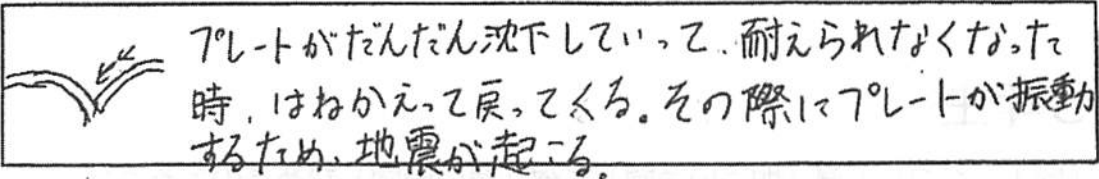 プレートがだんだん沈下していって、耐えられなくなった
時、はねかえって戻ってくる。その際にプレートが振動
するため、地震が起こる。